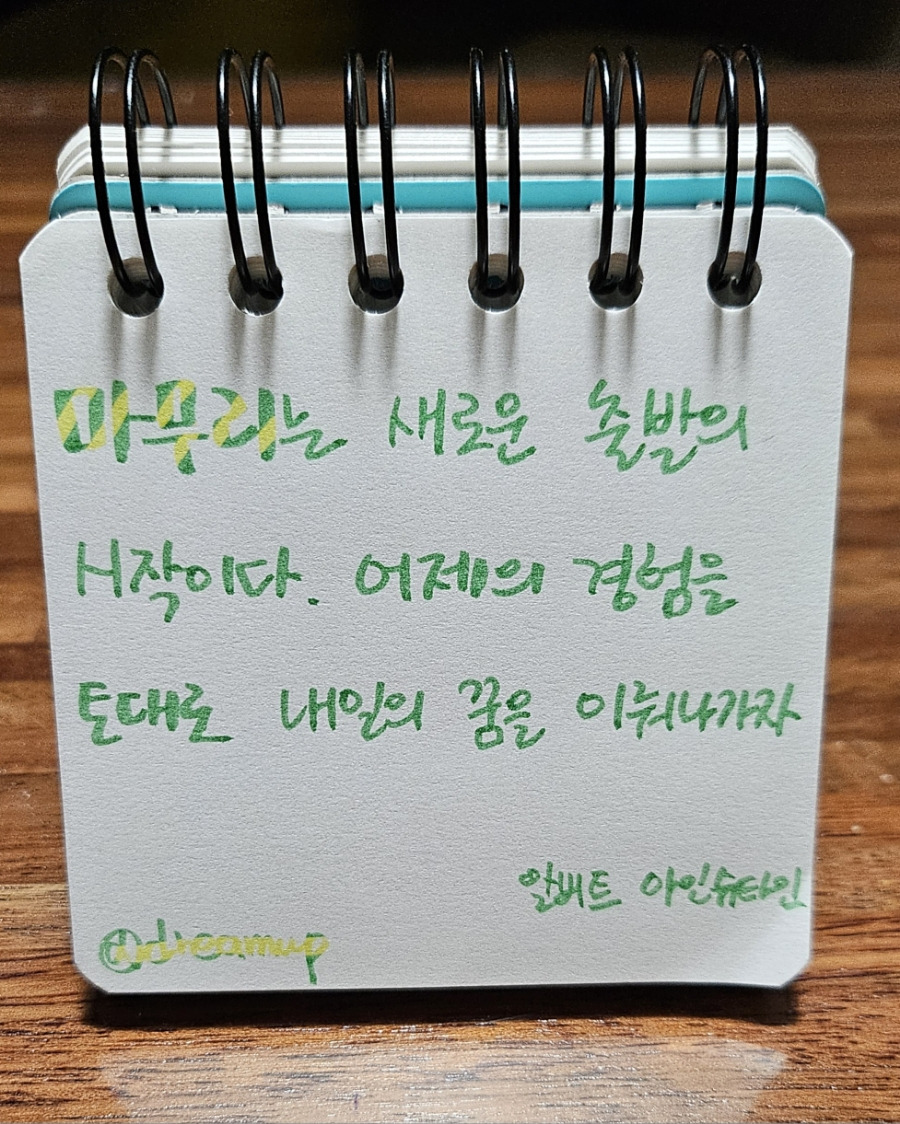 마무리는 새로운 출발의
시작이다. 어제의 경험을
토대로 내일의 꿈을 이뤄나가자
알버트 아인슈타인
@dreamup